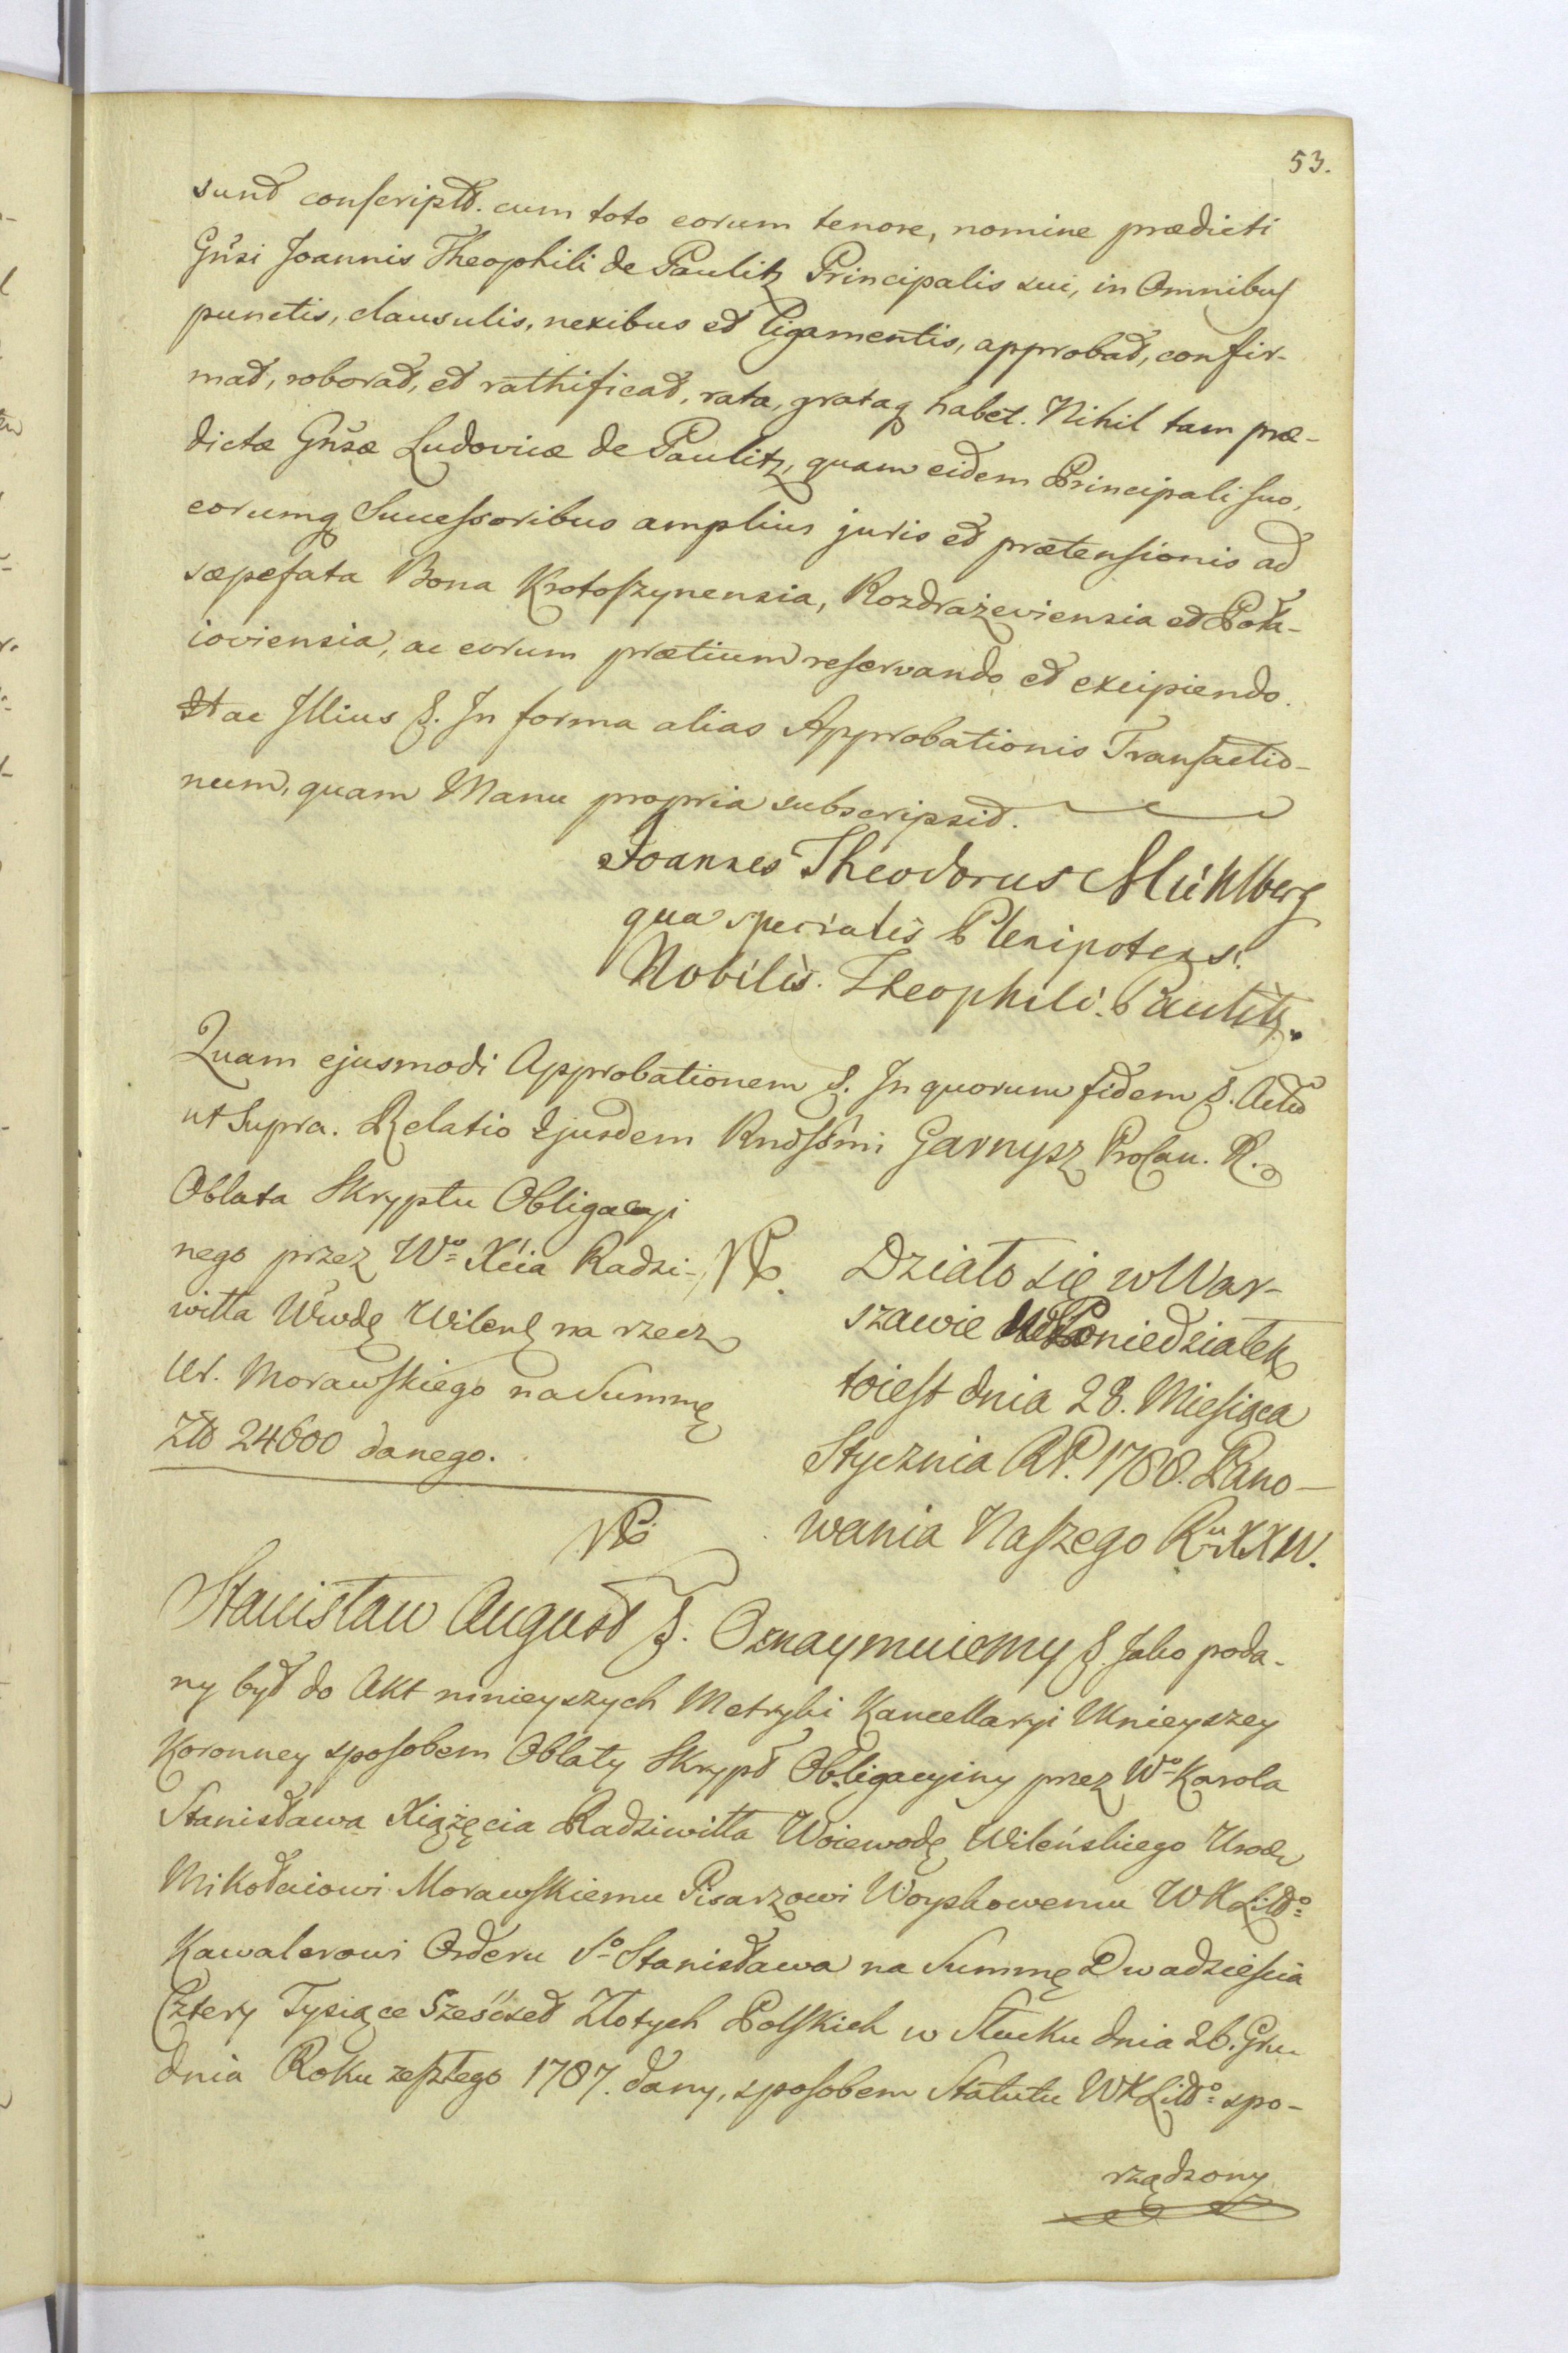 53.
sunt conscript. cum toto eorum tenore, nomine prædicti
Gnsi Joannis Theophili de Paulitz Principalis sui, in Omnibus
punctis, clausulis, nexibus et ligamentis, approbat, confir-
mat, roborat, et rathificat, rata, grataq habet. Nihil tam præ-
dictæ Gnsæ Ludovicæ de Paulitz, quam eidem Principali suo,
eorumq Successoribus amplius juris et prætensionis ad
sæpefata Bona Krotoszynensia, Rozdrażeviensia et
ioviensia, ac eorum prætium reservando et excipiendo.
ac Illius &. In forma alias Approbationis Transactio-
num, quam Manu propria subscripsit.
Joannes Theodorus Mühlberg
qua specialis Plenipotens.
Nobilis. Theophili. Paulitz.
Quam ejusmodi Approbationem &. In quorum fidem &. Act
ut Supra. Relatio Ejusdem Rndssmi Garnysz ProCan. R.
Oblata Skryptu Obligacyji
nego przez Wo Xcia Radzi-
witta Wwdę Wilenę na rzecz
Ur. Morawskiego na Summę
Złt 24600 danego.
Działo się w War-
szawie w Poniedziałek
toiest dnia 28. Miesiąca
Stycznia RP. 1788. Pano-
wania Naszego Ru XXIV.
Stanisław August &. Oznaymuiemy & Jako poda-
ny był do Akt mnieyszych Metryki Kancellaryi Mnieyszey
Koronney sposobem Oblaty Skrypt Obligacyiny przez Wo Karola
Stanisława Xiążęcia Radziwitta Woiewodę Wileńskiego Urodz
Mikołaiowi Morawskiemu Pisarzowi Woyskowemu WXLitto
Kawalerowi Orderu So Stanisława na Summę Dwadzieścia
Cztery Tysiące Sześćset Złotych Polskich w Słucku dnia 26. Gru
dnia Roku zeszłego 1787. dany, sposobem Statutu WXLitto spo-
rządzony